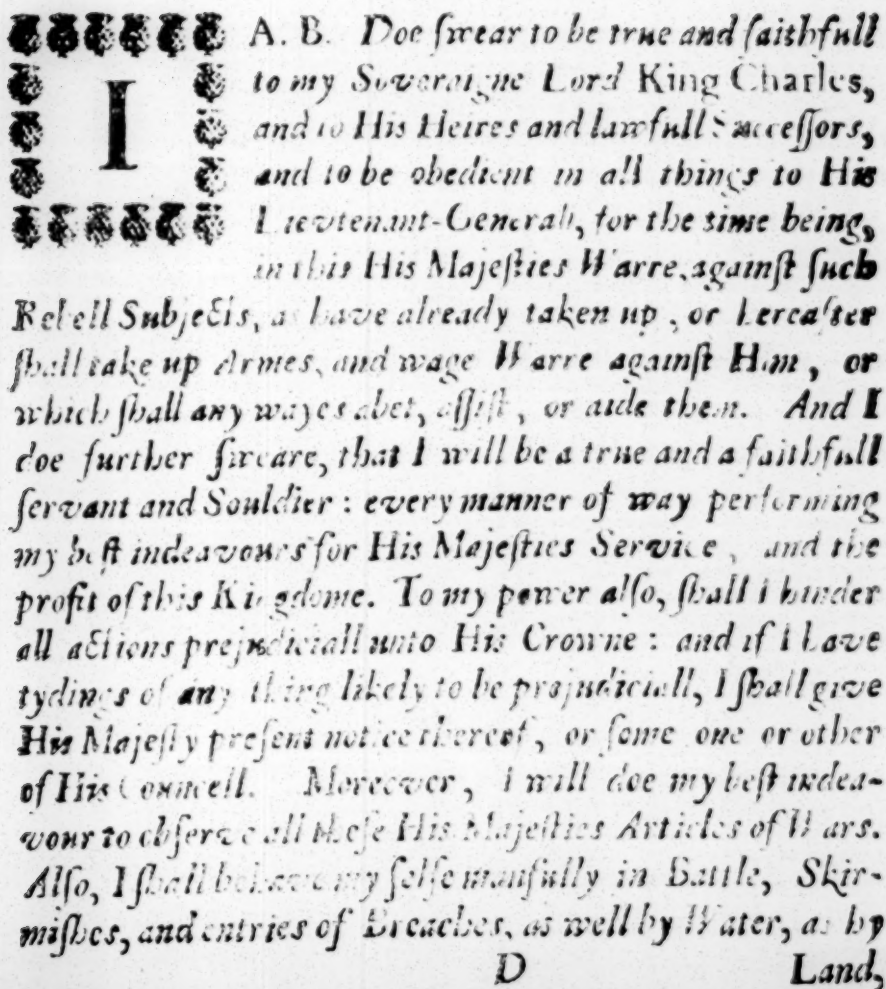 I A. B. Doe ſwear to be true and faithfull
to my Soveraigne Lord King Charles,
and to His Heires and lawfull Succeſſors,
and to be obedient in all things to His
Lievtenant-Generall, for the time being,
in this His Majeſties Warre, againſt ſuch
Rebell Subjects, as have already taken up, or hereafter
ſhall take up Armes, and wage Warre againſt Him, or
which ſhall any wayes abet, aſſiſt, or aide them. And I
doe further ſweare, that I will be a true and a faithfull
ſervant and Souldier: every manner of way performing
my beſt indeavours for His Majeſties Service, and the
profit of this Kingdome. To my power alſo, ſhall I hinder
all actions prejudiciall unto His Crowne: and if I have
tydings of any thing likely to be prejudiciall, I ſhall give
His Majeſty preſent notice thereof, or ſome one or other
of His Councell. Moreover, I will doe my beſt indea-
vour to obſerve all theſe His Majeſties Articles of Wars.
Alſo, I ſhall behave my ſelfe manfully in Battle, Skir-
miſhes, and entries of Breaches, as well by Water, as by
D Land,